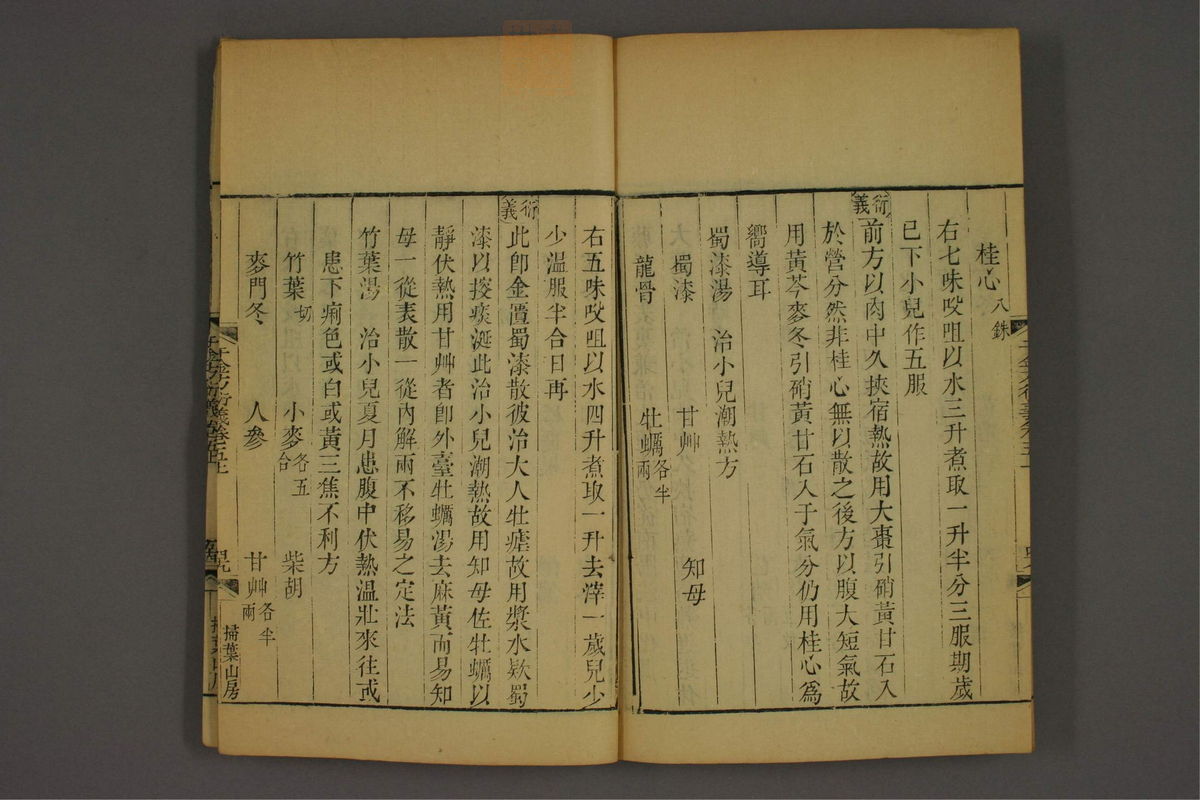 桂心八銖
右七味㕮咀以水三升煮取一升半分三服期歲
已下小兒作五服
衍義前方以肉中久挾宿熱故用大棗引硝黃甘石入
於營分然非桂心無以散之後方以腹大短氣故
用黃芩麥冬引硝黃甘石入于氣分仍用桂心爲
嚮導耳
蜀漆湯 治小兒潮熱方
蜀漆 甘艸 知母
龍骨 牡蠣各半兩
右五味㕮咀以水四升煮取一升去滓一歲兒少
少温服半合日再
衍義此卽金匱蜀漆散彼治大人牡瘧故用漿水欵蜀
漆以搜痰涎此治小兒潮熱故用知母佐牡蠣以
靜伏熱用甘艸者卽外臺牡蠣湯去麻黃而易知
母一從表散一從內解兩不移易之定法
竹葉湯 治小兒夏月患腹中伏熱温壯來往或
患下痢色或白或黃三焦不利方
竹葉切 小麥各五合 柴胡
麥門冬 人參 甘艸各半兩
千金方衍義卷五上
掃葉山房